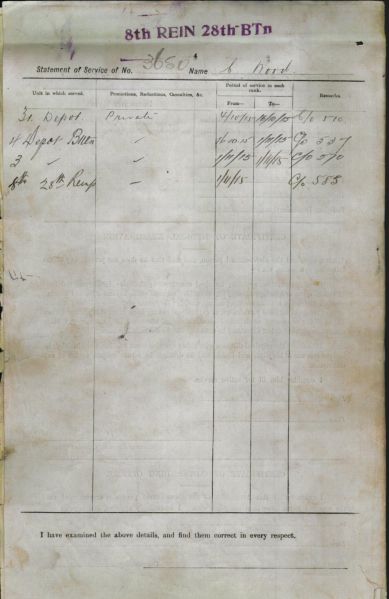 8th REIN 28th BTn
Statement of Service of No. 3680 Name C
Unit in which served. Promotions, Reductions, Casualties, &c. Period of service in each rank. Remarks.
From— To—
31 Depot Private 4/10/15 C/o 510
4 Depot Battn " 1/11/15 C/o 537
3 " " 1/11/15 1/11/15 C/o 570
8th 28th Reinf " 1/11/15 C/o 583
I have examined the above details, and find them correct in every respect.